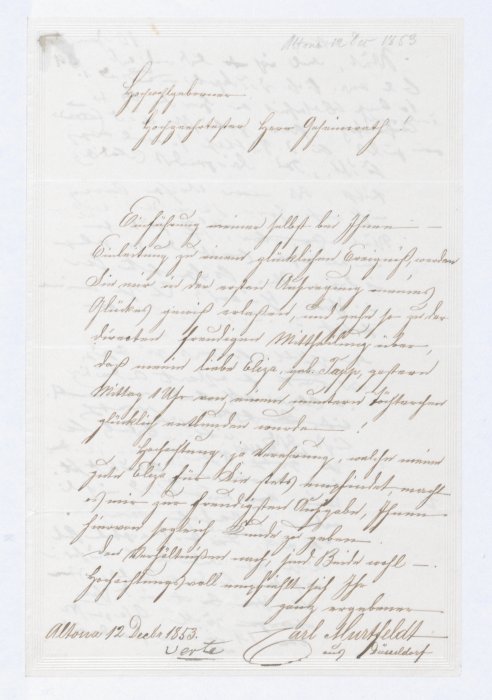 Altona 12 Dec 1853
Hochwohlgeborner
Hochzuverehrender Herr Geheimrath!
Einführung meiner selbst bei Ihnen —
Einleitung zu einem glücklichen Ereigniß, werden
Sie mir in der ersten Aufregung meines
Glückes gewiß erlaßen, und gehe so zu der
directen freudigen Mittheilung über,
daß meine liebe Elize, geb. Tapp, gestern
Mittag 1 Uhr von einem muntern Töchterchen
glücklich entbunden wurde — !
Hochachtung, ja Verehrung, welche meine
gute Elize für Sie stets empfindet, macht
es mir zur freudigsten Aufgabe, Ihnen
hiervon sogleich Kunde zu geben.
Den Verhältnißen nach, sind Beide wohl —.
Hochachtungsvoll empfiehlt sich Ihr
ganz ergebener
Carl Murtfeldt
aus Düsseldorf
Altona 12 Decbr 1853.
verte